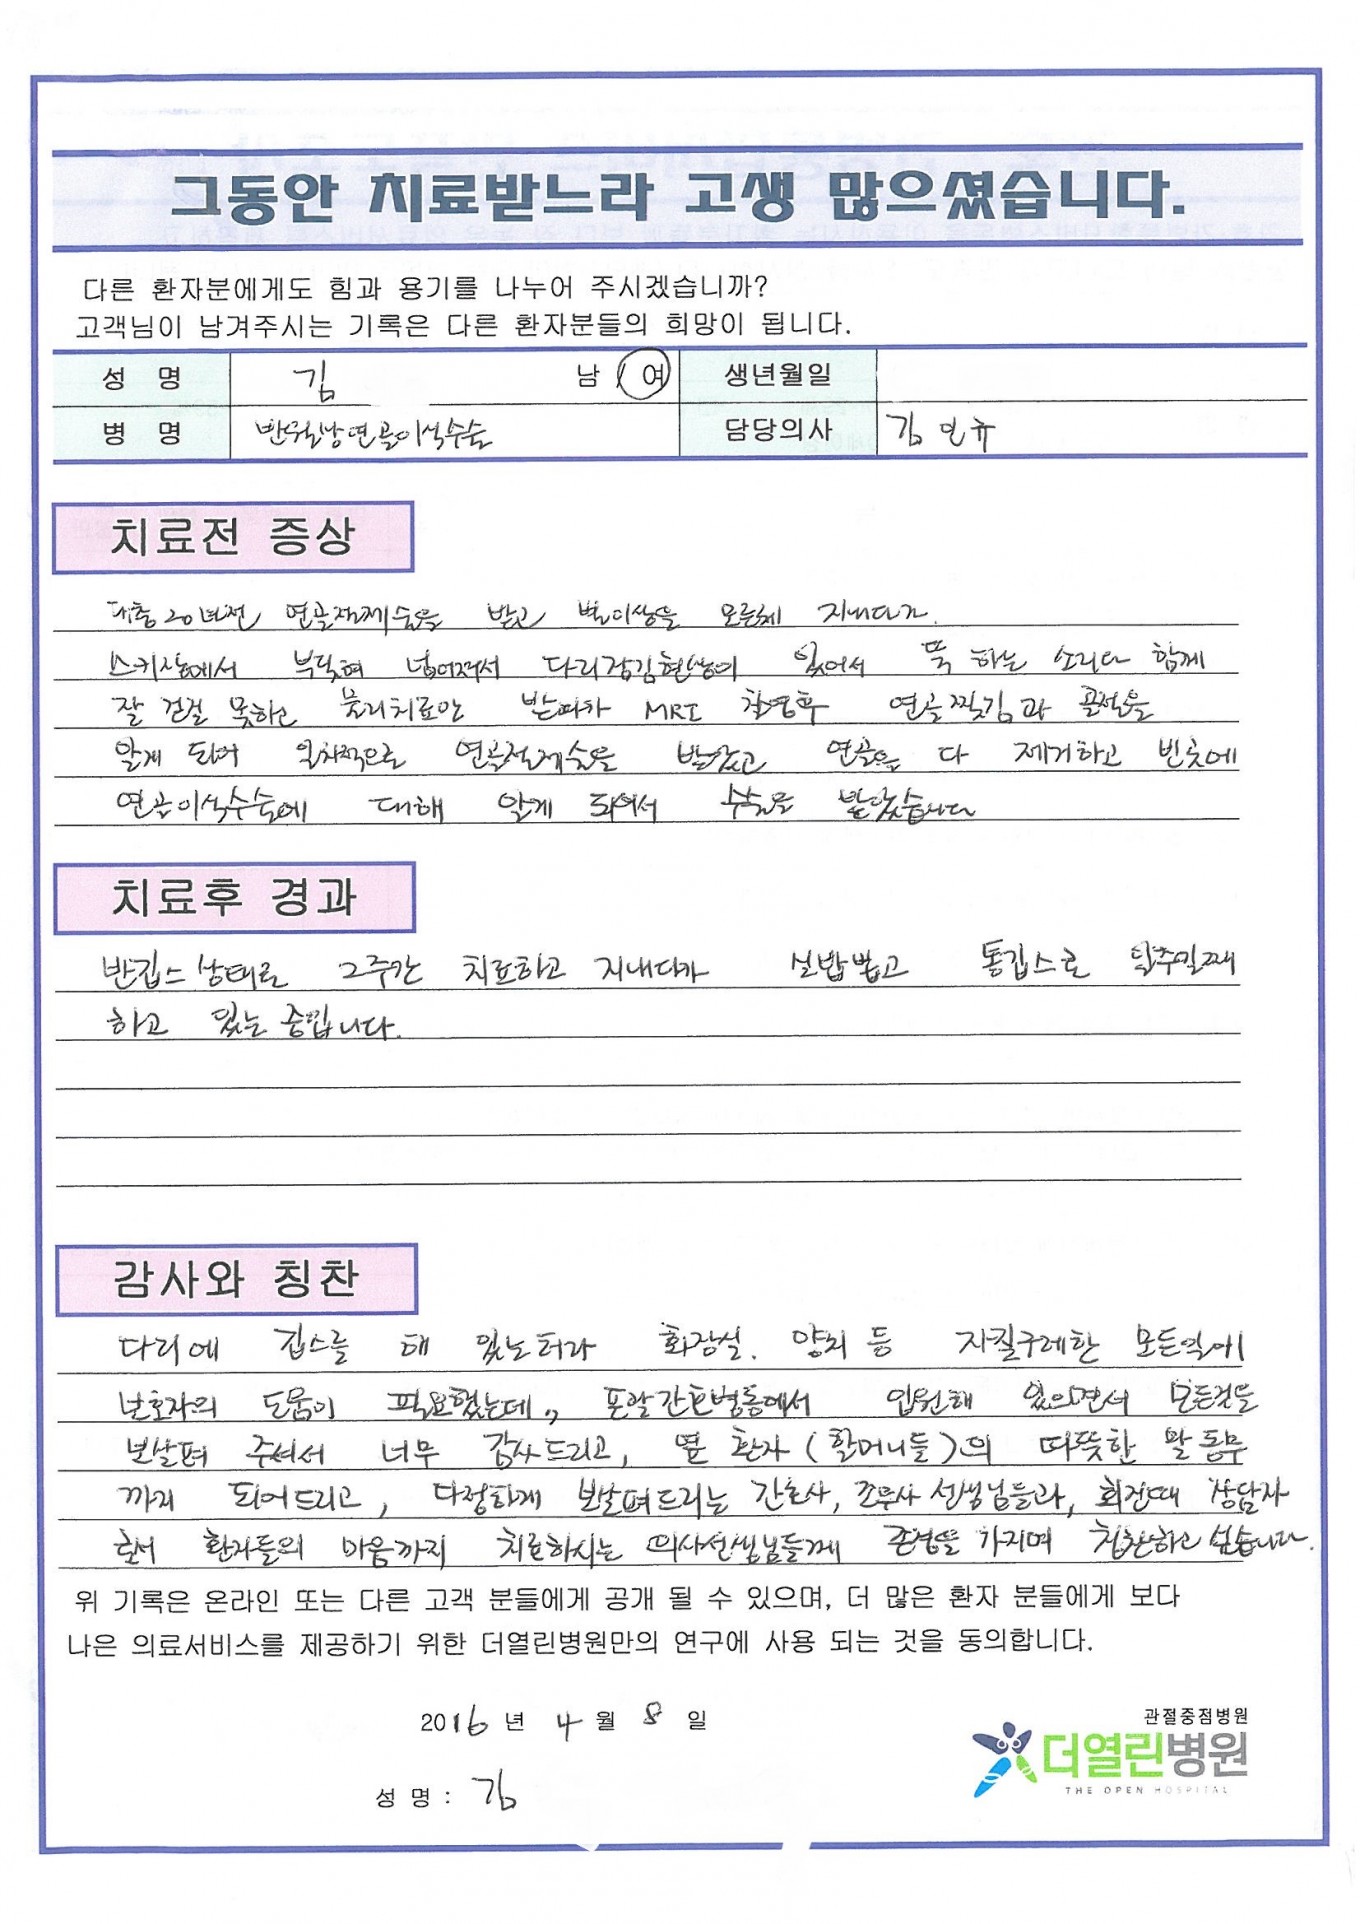 그동안 치료받느라 고생 많으셨습니다.
다른 환자분에게도 힘과 용기를 나누어 주시겠습니까?
고객님이 남겨주시는 기록은 다른 환자분들의 희망이 됩니다.
성 명 김 남 / 여 생년월일
병 명 반월상연골이식수술 담당의사 김민규
치료전 증상
대충 20년전 연골절제술을 받고 별이상을 모른체 지내다가.
스키장에서 부딪혀 넘어져서 다리잠김현상이 있어서 뚝 하는 소리와 함께
잘 걷질 못하고 물리치료만 받다가 MRI 촬영후 연골찢김과 골절을
알게 되어 일차적으로 연골절제술을 받았고 연골을 다 제거하고 빈곳에
연골이식수술에 대해 알게 되어서 수술을 받았습니다
치료후 경과
반깁스상태로 2주간 치료하고 지내다가 실밥뽑고 통깁스로 일주일째
하고 있는 중입니다.
감사와 칭찬
다리에 깁스를 해 있는터라 화장실. 양치 등 자질구레한 모든일에
보호자의 도움이 필요했는데., 포괄간호병동에서 입원해 있으면서 모든것들
보살펴 주셔서 너무 감사드리고, 옆 환자 (할머니들)의 따뜻한 말동무
까지 되어드리고, 다정하게 보살펴드리는 간호사, 조무사 선생님들과, 회진때 상담자
로서 환자들의 마음까지 치료하시는 의사선생님들께 존경을 가지며 칭찬하고 싶습니다.
위 기록은 온라인 또는 다른 고객 분들에게 공개 될 수 있으며, 더 많은 환자 분들에게 보다
나은 의료서비스를 제공하기 위한 더열린병원만의 연구에 사용 되는 것을 동의합니다.
2016 년 4 월 8 일
성 명 : 김
관절중점병원
더열린병원
THE OPEN HOSPITAL